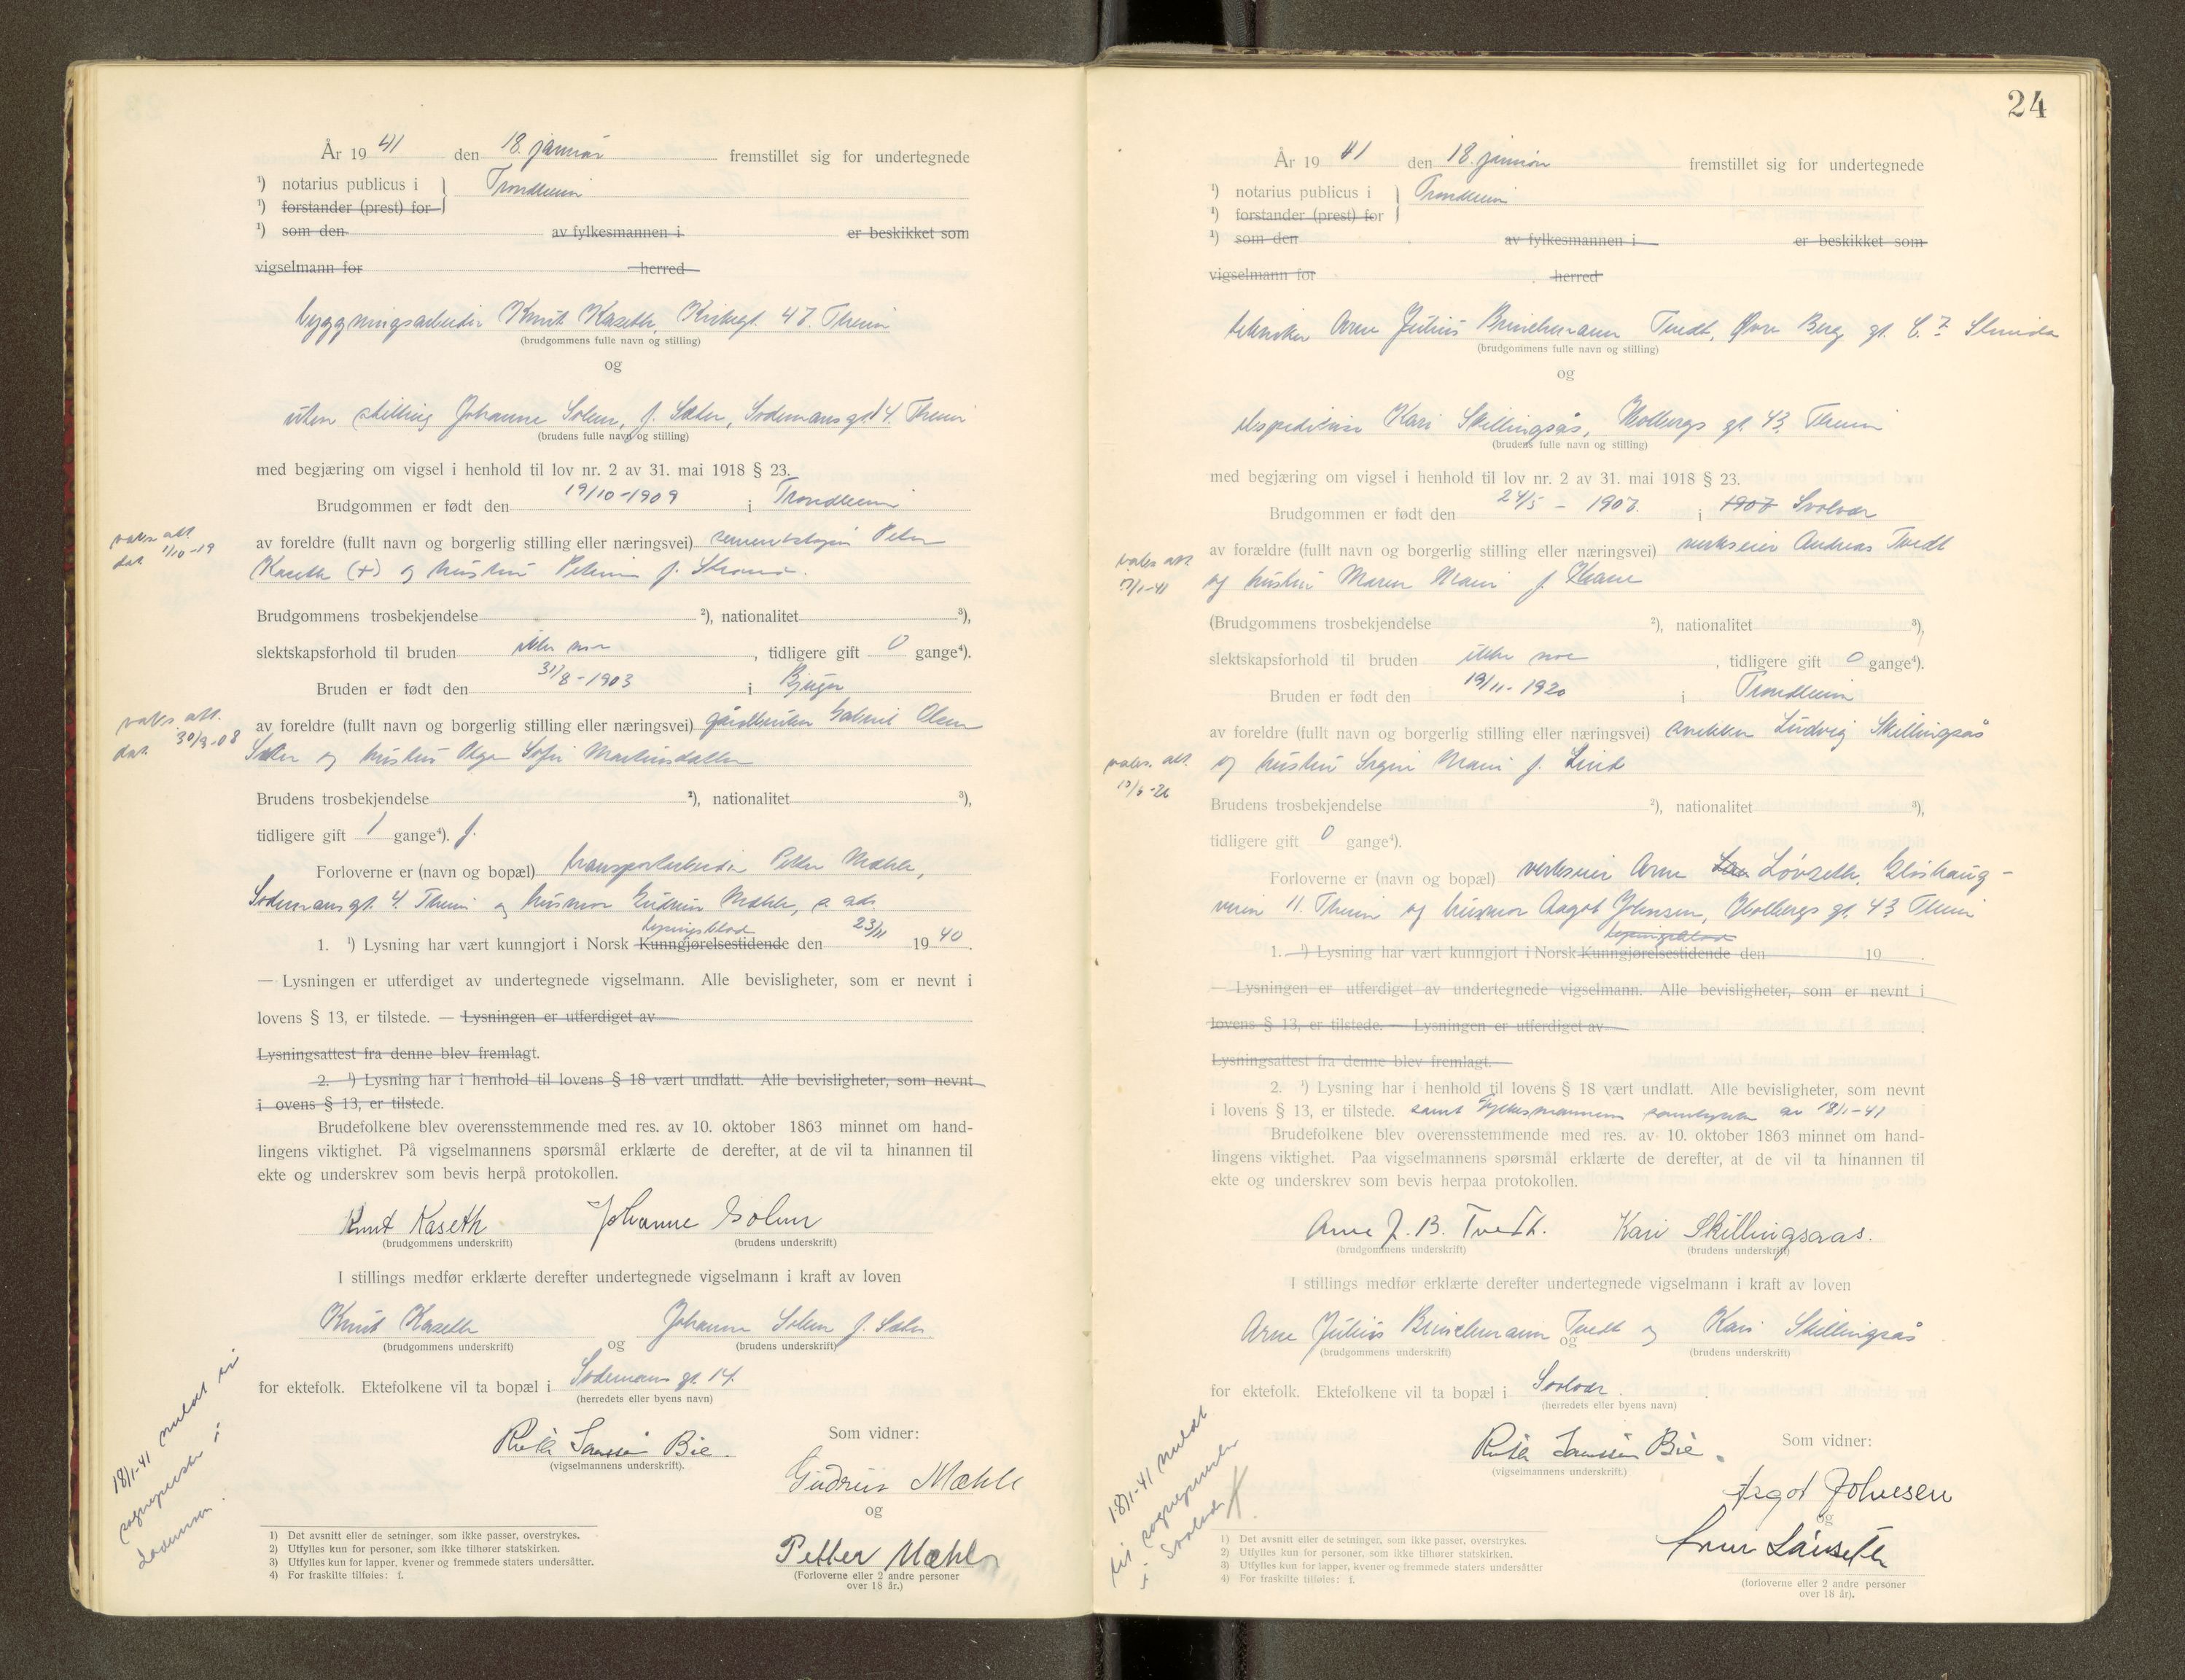 År 19 41 den 18. januar fremstillet sig for undertegnede
¹) notarius publicus i Trondheim
¹) forstander (prest) for
¹) som den av fylkesmannen i er beskikket som
vigselmann for herred
byggningsarbeider Knut Kaseth, Kirkegt. 47. Theim
(brudgommens fulle navn og stilling)
og
uten stilling Johanne Solem, f. Sæter, Sodemansgt. 14. Theim
(brudens fulle navn og stilling)
med begjæring om vigsel i henhold til lov nr. 2 av 31. mai 1918 § 23.
Brudgommen er født den 19/10-1909 i Trondheim
vaks. att.
dat. 1/10-19
av foreldre (fullt navn og borgerlig stilling eller næringsvei) Peter
Kaseth (+) og hustru f.
Brudgommens trosbekjendelse ²), nationalitet ³),
slektskapsforhold til bruden ikke noe, tidligere gift 0 gange⁴).
Bruden er født den 31/8-1903 i Bjugn
vaks. att.
dat. 30/9-08
av foreldre (fullt navn og borgerlig stilling eller næringsvei) gårdbruker Gabriel Olsen
Sæter og hustru Olga Sofie Martinsdatter
Brudens trosbekjendelse ²), nationalitet ³),
tidligere gift 1 gange⁴). f.
Forloverne er (navn og bopæl) transportarbeider Petter Mæhle,
Sodemansgt. 4. Theim og husmor Gudrun Mæhle, s. ads.
lysingsblad
1. ¹) Lysning har vært kunngjort i Norsk Kunngjørelsestidende den 23/11 19 40.
— Lysningen er utferdiget av undertegnede vigselmann. Alle bevisligheter, som er nevnt i
lovens § 13, er tilstede. — Lysningen er utferdiget av
Lysningsattest fra denne blev fremlagt.
2. ¹) Lysning har i henhold til lovens § 18 vært undlatt. Alle bevisligheter, som nevnt
i ovens § 13, er tilstede.
Brudefolkene blev overensstemmende med res. av 10. oktober 1863 minnet om hand-
lingens viktighet. På vigselmannens spørsmål erklærte de derefter, at de vil ta hinannen til
ekte og underskrev som bevis herpå protokollen.
Knut Kaseth Johanne Solem
(brudgommens underskrift) (brudens underskrift)
I stillings medfør erklærte derefter undertegnede vigselmann i kraft av loven
Knut Kaseth og Johanne Solem f. Sæter
(brudgommens underskrift) (brudens underskrift)
for ektefolk. Ektefolkene vil ta bopæl i Sodemans gt. 14.
(herredets eller byens navn)
18/1-41 meldt til
sogneprest i
Lademoen.
Ruth Janssen Bie.
(vigselmannens underskrift).
Som vidner:
Gudrun Mæhle
og
Petter Mæhle
(Forloverne eller 2 andre personer
over 18 år.)
1) Det avsnitt eller de setninger, som ikke passer, overstrykes.
2) Utfylles kun for personer, som ikke tilhører statskirken.
3) Utfylles kun for lapper, kvener og fremmede staters undersåtter.
4) For fraskilte tilføles: f.
24
År 19 41 den 18. januar fremstillet sig for undertegnede
¹) notarius publicus i Trondheim
¹) forstander (prest) for
¹) som den av fylkesmannen i er beskikket som
vigselmann for herred
tekniker Arne Julius Brinchmann Tvedt, Øvre Berg gt.
(brudgommens fulle navn og stilling)
og
ekspeditrise Kari Skillingsås, Holbergs gt. 43. Theim
(brudens fulle navn og stilling)
med begjæring om vigsel i henhold til lov nr. 2 av 31. mai 1918 § 23.
Brudgommen er født den 24/5 - 1907. i 1907 Svolvær
vaks. att.
7/1-41
av forældre (fullt navn og borgerlig stilling eller næringsvei) verkseier Andreas Tvedt
og hustru Maren Marie f.
(Brudgommens trosbekjendelse ²), nationalitet ³),
slektskapsforhold til bruden ikke noe, tidligere gift 0 gange⁴).
Bruden er født den 19/11-1920 i Trondheim
av foreldre (fullt navn og borgerlig stilling eller næringsvei) snekker Ludvig Skillingsås
vaks. att.
og hustru Marie f. Lind
Brudens trosbekjendelse ²), nationalitet ³),
tidligere gift 0 gange⁴).
Forloverne er (navn og bopæl) verkseier Arne Løvseth, Gløshaug-
veien 11. Theim og husmor Aagot Johnsen, Holbergs gt. 43 Theim
lysingsblad
1. ¹) Lysning har vært kunngjort i Norsk Kunngjørelsestidende den 19 .
— Lysningen er utferdiget av undertegnede vigselmann. Alle bevisligheter, som er nevnt i
lovens § 13, er tilstede. — Lysningen er utferdiget av
Lysningsattest fra denne blev fremlagt.
2. ¹) Lysning har i henhold til lovens § 18 vært undlatt. Alle bevisligheter, som nevnt
i lovens § 13, er tilstede. samt Fylkesmannens samtykke av 18/1-41
Brudefolkene blev overensstemmende med res. av 10. oktober 1863 minnet om hand-
lingens viktighet. Paa vigselmannens spørsmål erklærte de derefter, at de vil ta hinannen til
ekte og underskrev som bevis herpaa protokollen.
Arne J. B. Tvedt. Kari Skillingsaas.
(brudgommens underskrift) (brudens underskrift)
I stillings medfør erklærte derefter undertegnede vigselmann i kraft av loven
Arne Julius Brinchmann Tvedt og Kari Skillingsås
og
(brudgommens underskrift) (brudens underskrift)
for ektefolk. Ektefolkene vil ta bopæl i Svolvær.
(herredets eller byens navn)
18/1-41 meldt
til sogneprest
i Svolvær
Ruth Janssen Bie.
(vigselmannens underskrift.)
Som vidner:
Aagot Johnsen
og
Arne Løvseth
(forloverne eller 2 andre personer
over 18 år).
1) Det avsnitt eller de setninger, som ikke passer, overstrykes.
2) Utfylles kun for personer, som ikke tilhører statskirken.
3) Utfylles kun for lapper, kvener og fremmede staters undersåtter
4) For fraskilte tilføles: f.